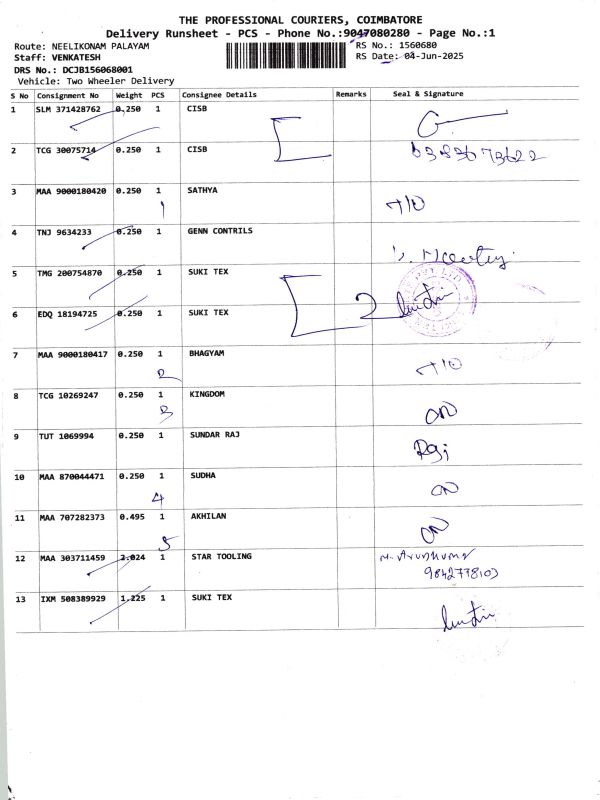 THE PROFESSIONAL COURIERS, COIMBATORE
Delivery Runsheet - PCS - Phone No.:9047080280 - Page No.:1
Route: NEELIKONAM PALAYAM RS No.: 1560680
Staff: VENKATESH RS Date: 04-Jun-2025
DRS No.: DCJB156068001
Vehicle: Two Wheeler Delivery
S No Consignment No Weight PCS Consignee Details Remarks Seal & Signature
1 SLM 371428762 0.250 1 CISB
2 TCG 30075714 0.250 1 CISB 6383673622
3 MAA 9000180420 0.250 1 SATHYA
1
4 TNJ 9634233 0.250 1 GENN CONTRILS
5 TMG 200754870 0.250 1 SUKI TEX
2
6 EDQ 18194725 0.250 1 SUKI TEX
7 MAA 9000180417 0.250 1 BHAGYAM
2
8 TCG 10269247 0.250 1 KINGDOM
3
9 TUT 1069994 0.250 1 SUNDAR RAJ
10 MAA 870044471 0.250 1 SUDHA
4
11 MAA 707282373 0.495 1 AKHILAN
5
12 MAA 303711459 2.024 1 STAR TOOLING
9842778103
13 IXM 508389929 1.225 1 SUKI TEX